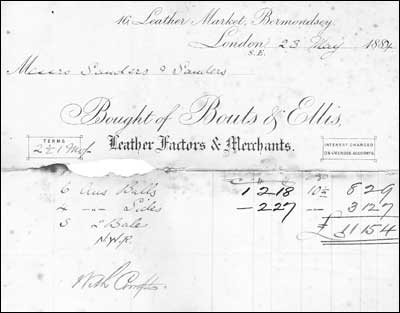 16, Leather Market, Bermondsey,
London 23 May 1884
S.E.
Messrs Sanders & Sanders
Bought of Bouts & Ellis,
TERMS
2½ 1 Mo
Leather Factors & Merchants.
INTEREST CHARGED
ON OVERDUE ACCOUNTS.
6 Aus Butts 1 2 18 8 2 9
4 -"- Sides - 2 27 3 12 7
£ 11 15 4
S 2 Bale
N.W.R.
With Compts